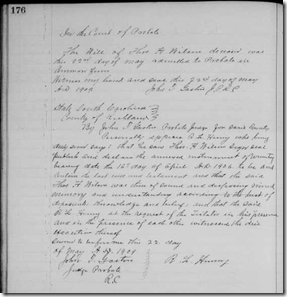 176
In the Court of Probate
The Will of Thos H Wilson deceased was
this 22nd day of May admitted to Probate in
Common form
Witness my hand and seal this 22nd day of May
A.D. 1909 John T. Gaston J.P.R.C.
State South Carolina
County of Richland
By John T. Gaston Probate Judge for said County
Personally appears R H who being
duly sworn says: that he saw Thos H Wilson sign seal
publish and declare the annexed instrument of writing
bearing date the 15th day of April A.D. 1906 to be and
contain his last will and testament and that the said
Thos H Wilson was then of sound and disposing mind
memory and understanding according to the best of
deponents knowledge and belief; and that the said
R H at the request of the Testator in his presence
and in the presence of each other witnessed the due
execution thereof
Sworn to before me this 22 day
of May A.D. 1909
John T. Gaston R H
Judge Probate
R.C.